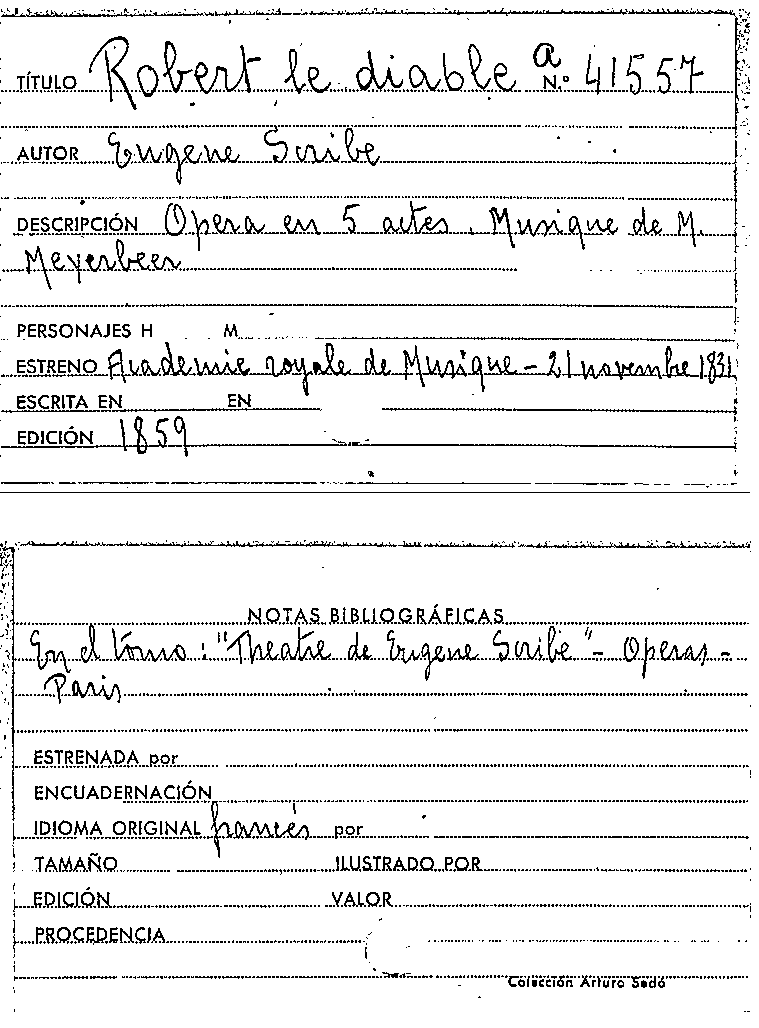 TÍTULO Robert le diable a N.º 41557
AUTOR Eugene Scribe
DESCRIPCIÓN Opera en 5 actes. Musique de M.
Meyerbeer
PERSONAJES H M
ESTRENO Academie royale de Musique - 21 novembre 1831
ESCRITA EN EN
EDICIÓN 1859
NOTAS BIBLIOGRÁFICAS
En el tomo: "Theatre de Eugene Scribe" - Operas -
Paris
ESTRENADA por
ENCUADERNACIÓN
IDIOMA ORIGINAL francés por
TAMAÑO ILUSTRADO POR
EDICIÓN VALOR
PROCEDENCIA
Colección Arturo Sedó